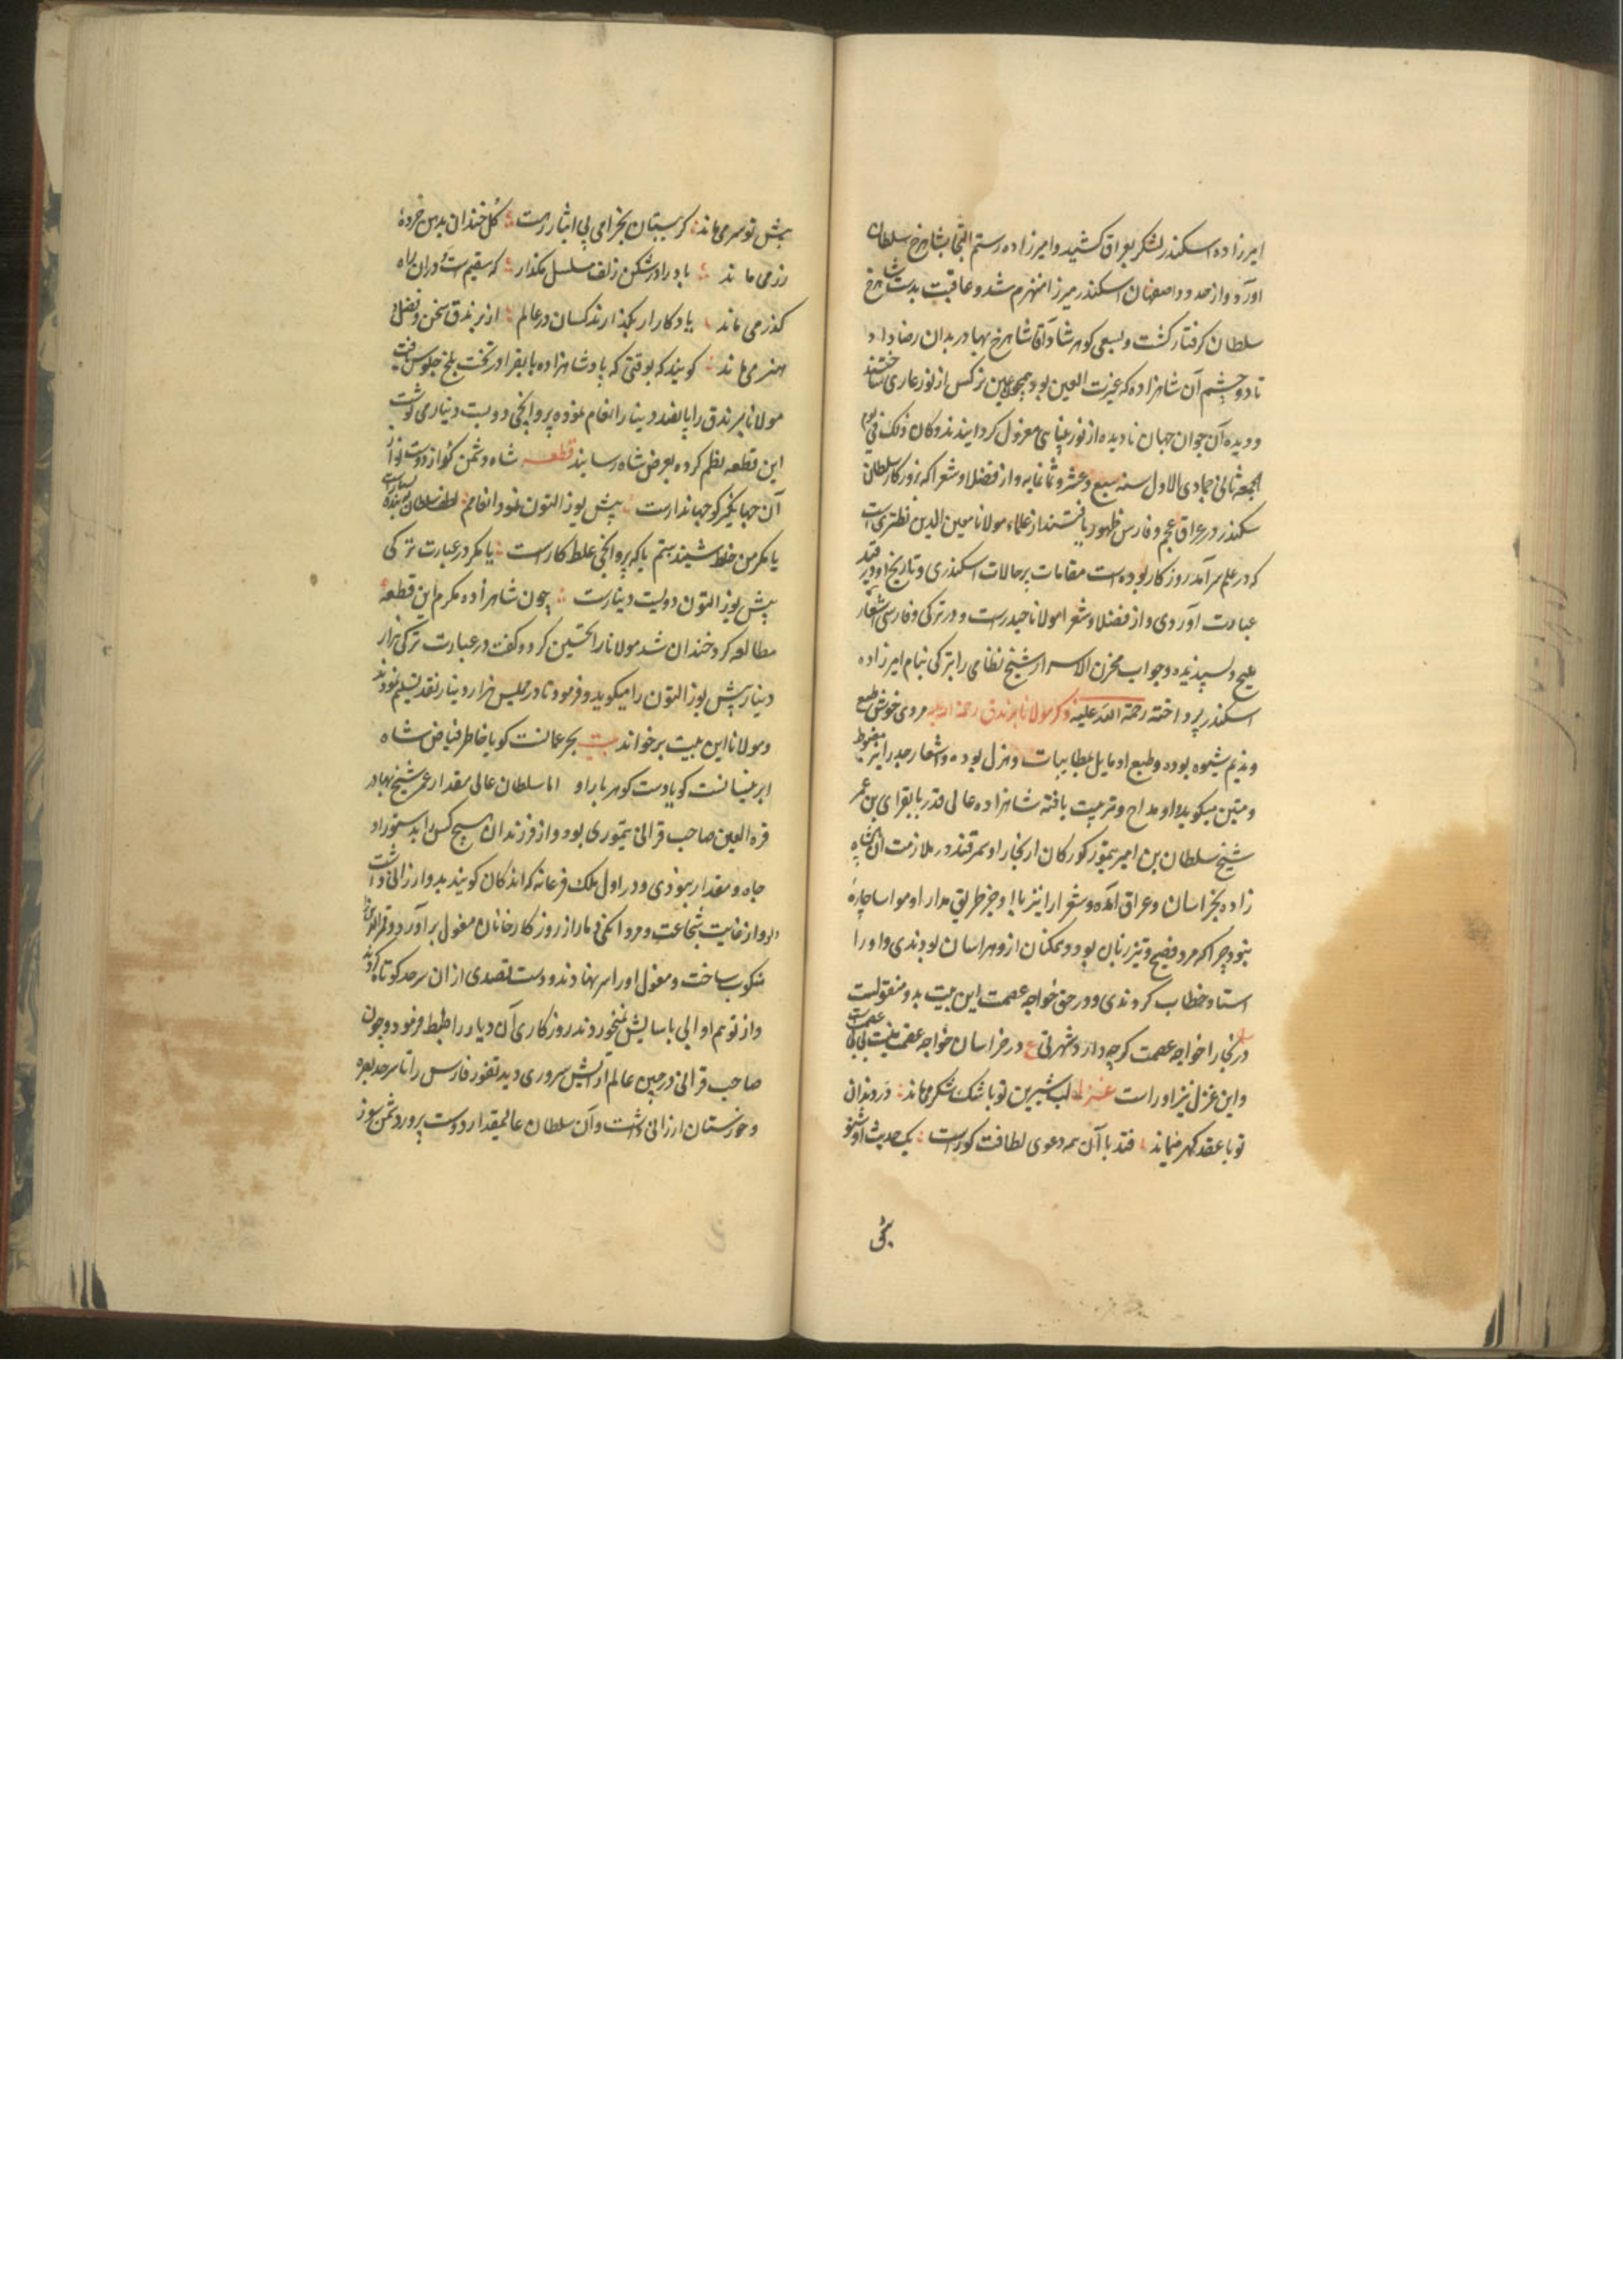 امیرزاده اسکندر لشکر بعراق کشید و امیرزاده رستم التجا بشاهرخ سلطان
آورد و از حدود اصفهان اسکندر میرزا منهزم شد و عاقبت بدست شاهرخ
سلطان کرفتار کشت و بسعی کوهرشاد آقا شاهرخ بهادر بدان رضا داد
تا دو چشم آن شاهزاده که عیرت العین بود همچو عین نرکس از نور عاری ساختند
و دیده آن جوان جهان نادیده از نور بینایی معزول کردانیدند و کان ذلک فی یوم
الجمعه ثانی جمادی الاول سنه سبع و عشر و ثمانمایه و از فضلا و شعرا که بروزکار سلطان
سکندر در عراق عجم و فارس ظهور یافتند از علماء مولانا معین الدین نطنزی است
که در علم سرآمد روزکار بوده است مقامات بر حالات اسکندری و تاریخ او در قید
عبارت آوردی و از فضلا و شعرا مولانا حیدرست و در ترکی و فارسی اشعار
ملیح و لپسندیده و جواب مخزن الاسرار شیخ نظامی را بترکی بنام امیرزاده
اسکندر پرداخته رحمة الله علیه ذکر مولانا برندق رحمة الله علیه مردی خوش طبع
و ندیم شیوه بوده و طبع او مایل بمطایبات و هزل بوده و اشعار جد را نیز مضبوط
و متین میکوید و او مداح و تربیت یافته شاهزاده عالی قدر بایقرای بن عمر
شیخ سلطان بن امیر تیمور کورکان از بخارا و سمرقند در ملازمت آن شاه
زاده بخراسان و عراق آمده و شعرا را نیز با او جز طریق مدارا و مواسا چاره
نبود چرا که مرد فصیح و تیز زبان بود و همکنان ازو هراسان بودندی و او را
استاد خطاب کردندی و در حق خواجه عصمت این بیت بدو منقولست
در بخارا خواجه عصمت کرچه دارد شهرتی ع در خراسان خواجه عصمت نیست بی بی عصمت
و این غزل نیز او راست غزل لب شیرین تو با تنک شکر میماند در دندان
تو با عقد کهر میماند قند با آن همه دعوی لطافت کوراست یک حدیث از تو
پیش تو سر می ماند کر ببستان بخرامی پی ایثار رهت کل خندان بدهن خرده
زر می ماند باد را در شکن زلف مسلسل مکذار که سقیم است و در آن راه
کذر می ماند یادکار ار بکذارند کسان در عالم از برندق سخن و فضل و
هنر می ماند کویند که بوقتی که پادشاهزاده بایقرا در تخت بلخ جلوس یافت
مولانا برندق را پانصد دینار انعام نموده پروانچی دویست دینار می نوشت
این قطعه نظم کرده بعرض شاه رسانید قطعه شاه دشمن کداز دوست نواز
آن جهانکیر کو جهاندارست پیش یوز التون نمود انعامم لطف سلطان ببنده بسیارست
یا مکر من غلط شنیدستم یا که پروانچی غلط کار است یا مکر در عبارت ترکی
پیش یوز التون دویست دینارست چون شاهزاده مکرم این قطعه
مطالعه کرد خندان شد مولانا را تحسین کرد و کفت در عبارت ترکی هزار
دینار پیش یوز التون را میکویند و فرمود تا در مجلس هزار دینار نقد تسلیم نمودند
و مولانا این بیت برخواند بیت بحر عمانست کویا خاطر فیاض شاه
ابر نیسانست کویا دست کوهر بار او اما سلطان عالی مقدار عمر شیخ بهادر
قره العین صاحب قرانی تیموری بود و از فرزندان هیچ کس را بدستور او
جاه و مقدار نبودی و در اول ملک فرغانه که اندکان کویند بدو ارزانی داشت
و او از غایت شجاعت و مردانکی دمار از روزکار خانان مغول برآورد و قمرالدین را
منکوب ساخت و مغول او را سر نهادند و دست تصدی از آن سرحد کوتاه کردند
و از توهم او ابی بآسایش نمیخوردند روزکاری آن دیار را ضبط فرمود و چون
صاحب قرانی در جبین عالم آرایش سروری دید تفور فارس را تا سرحد بصره
و خوزستان ارزانی داشت و آن سلطان عالیمقدار دوست پرور دشمن سوز